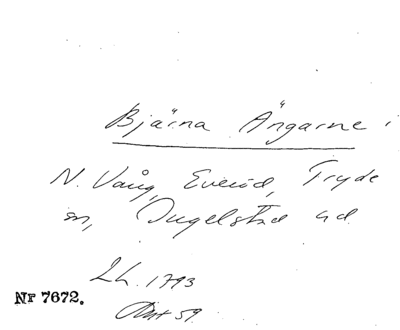 Bjärna Ängarne i
N. Vång, Everöd, Tryde
sn, Ingelstad hd.
L.L. 1793
Nr 7672.
Akt 59